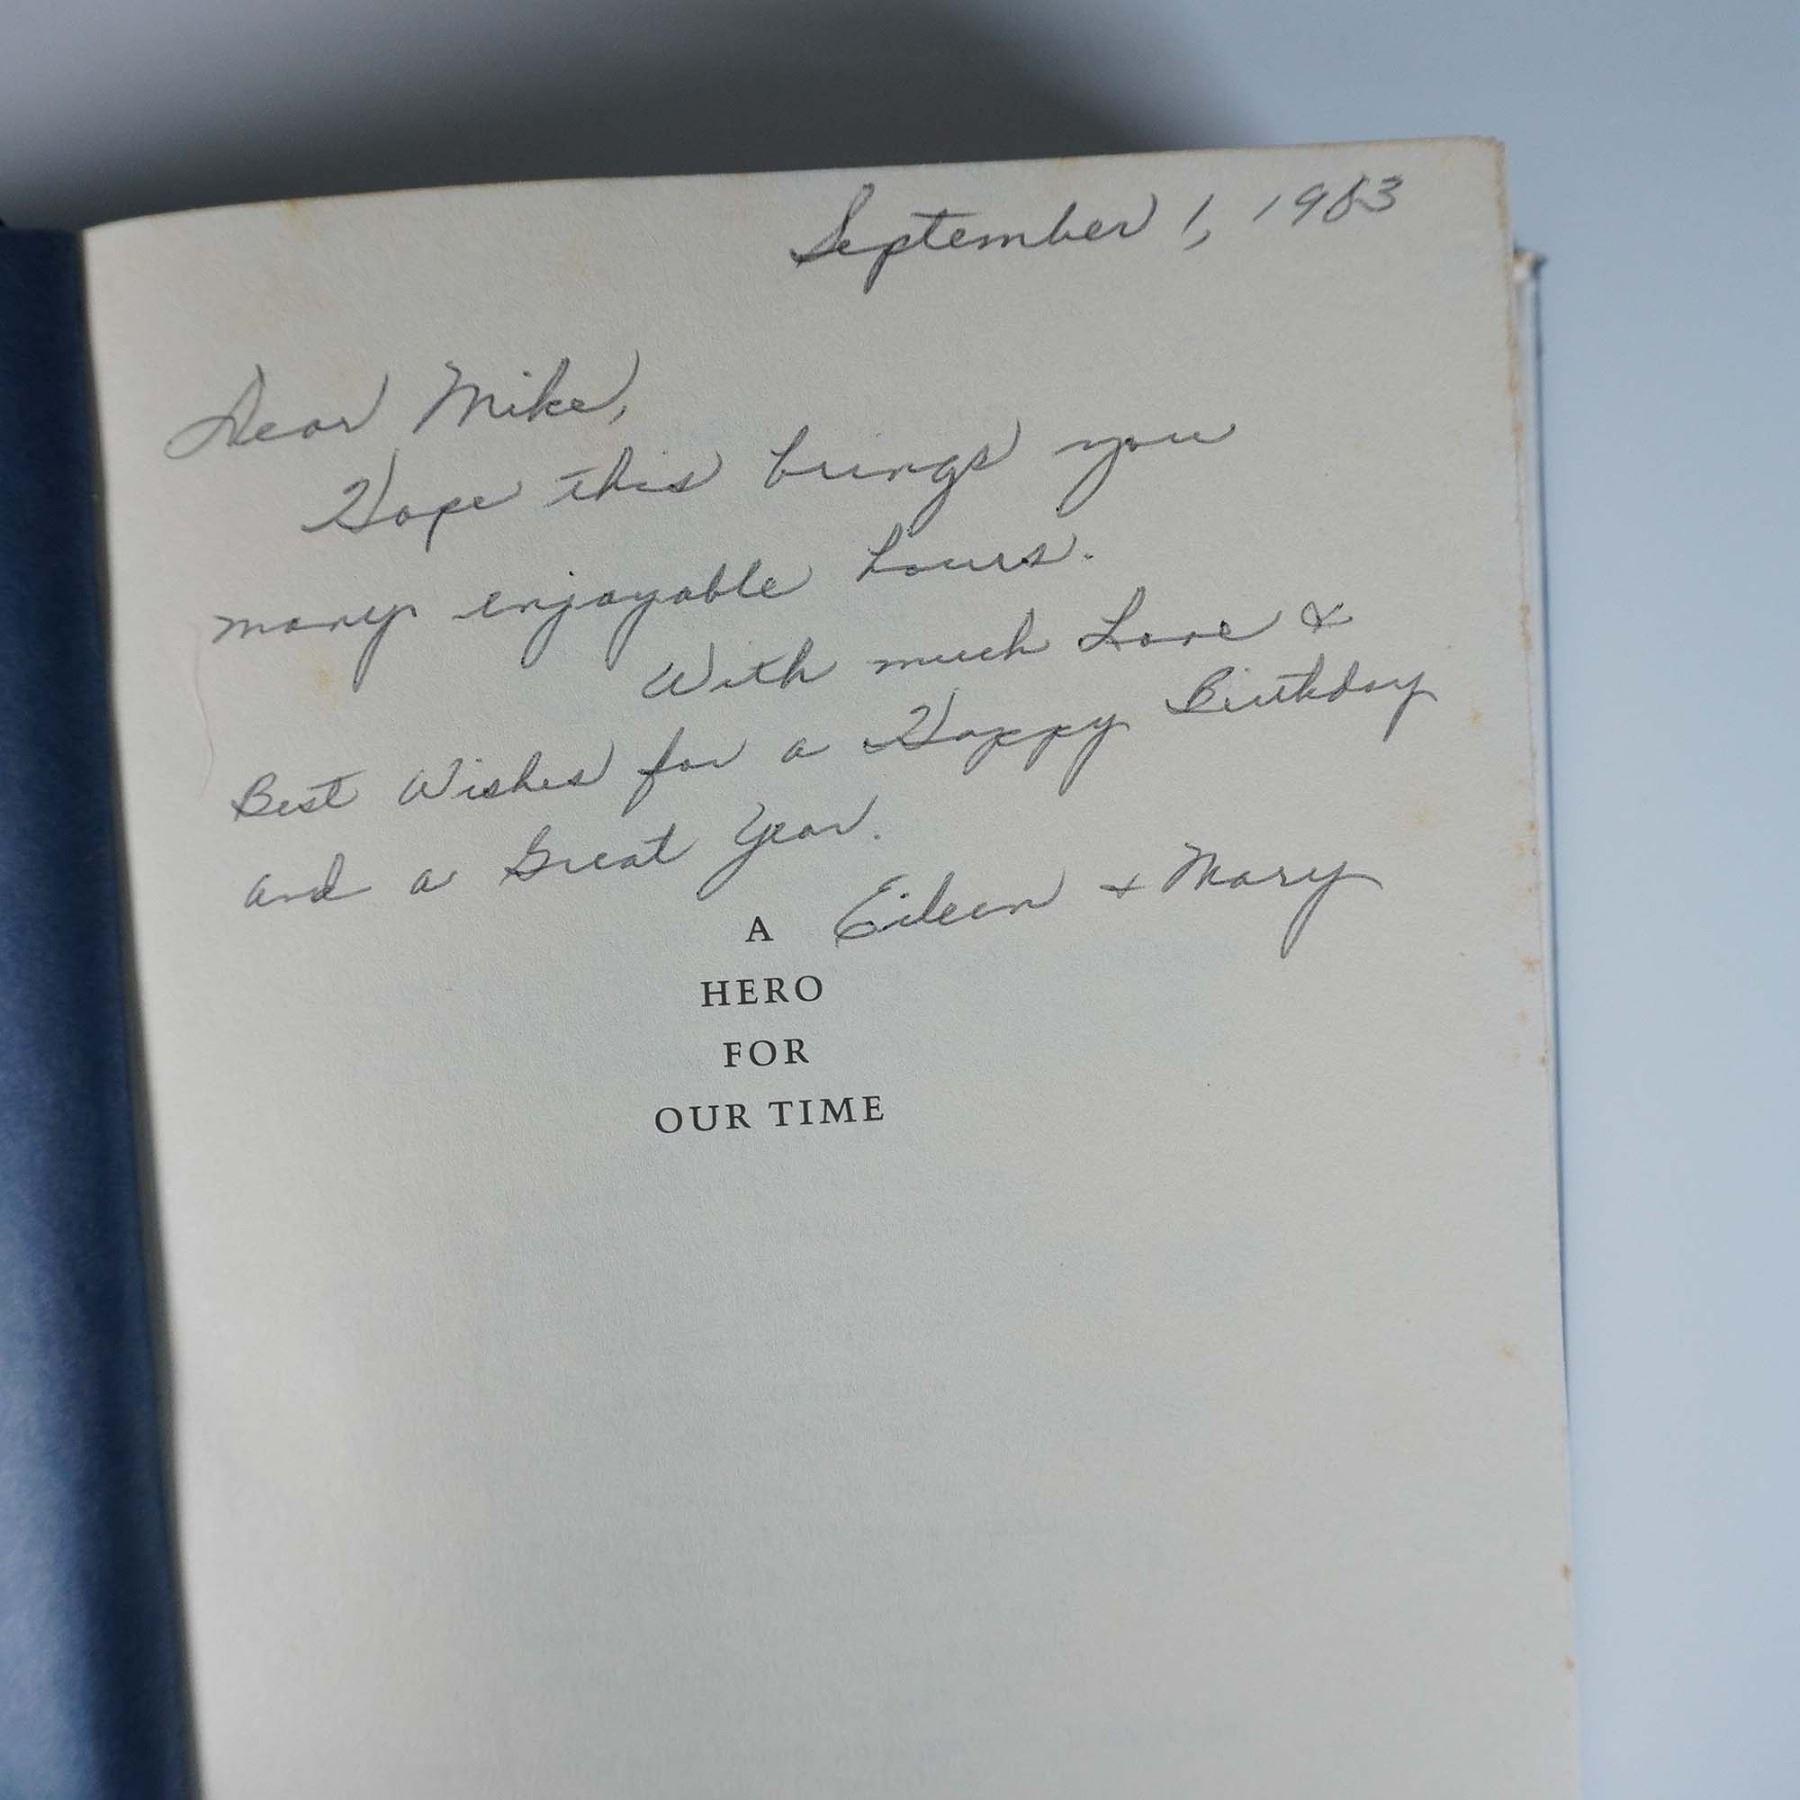 September 1, 1983
Dear Mike,
Hope this brings you
many enjoyable hours.
With much Love &
Best Wishes for a Happy Birthday
and a Great Year.
Eileen + Mary
A
HERO
FOR
OUR TIME